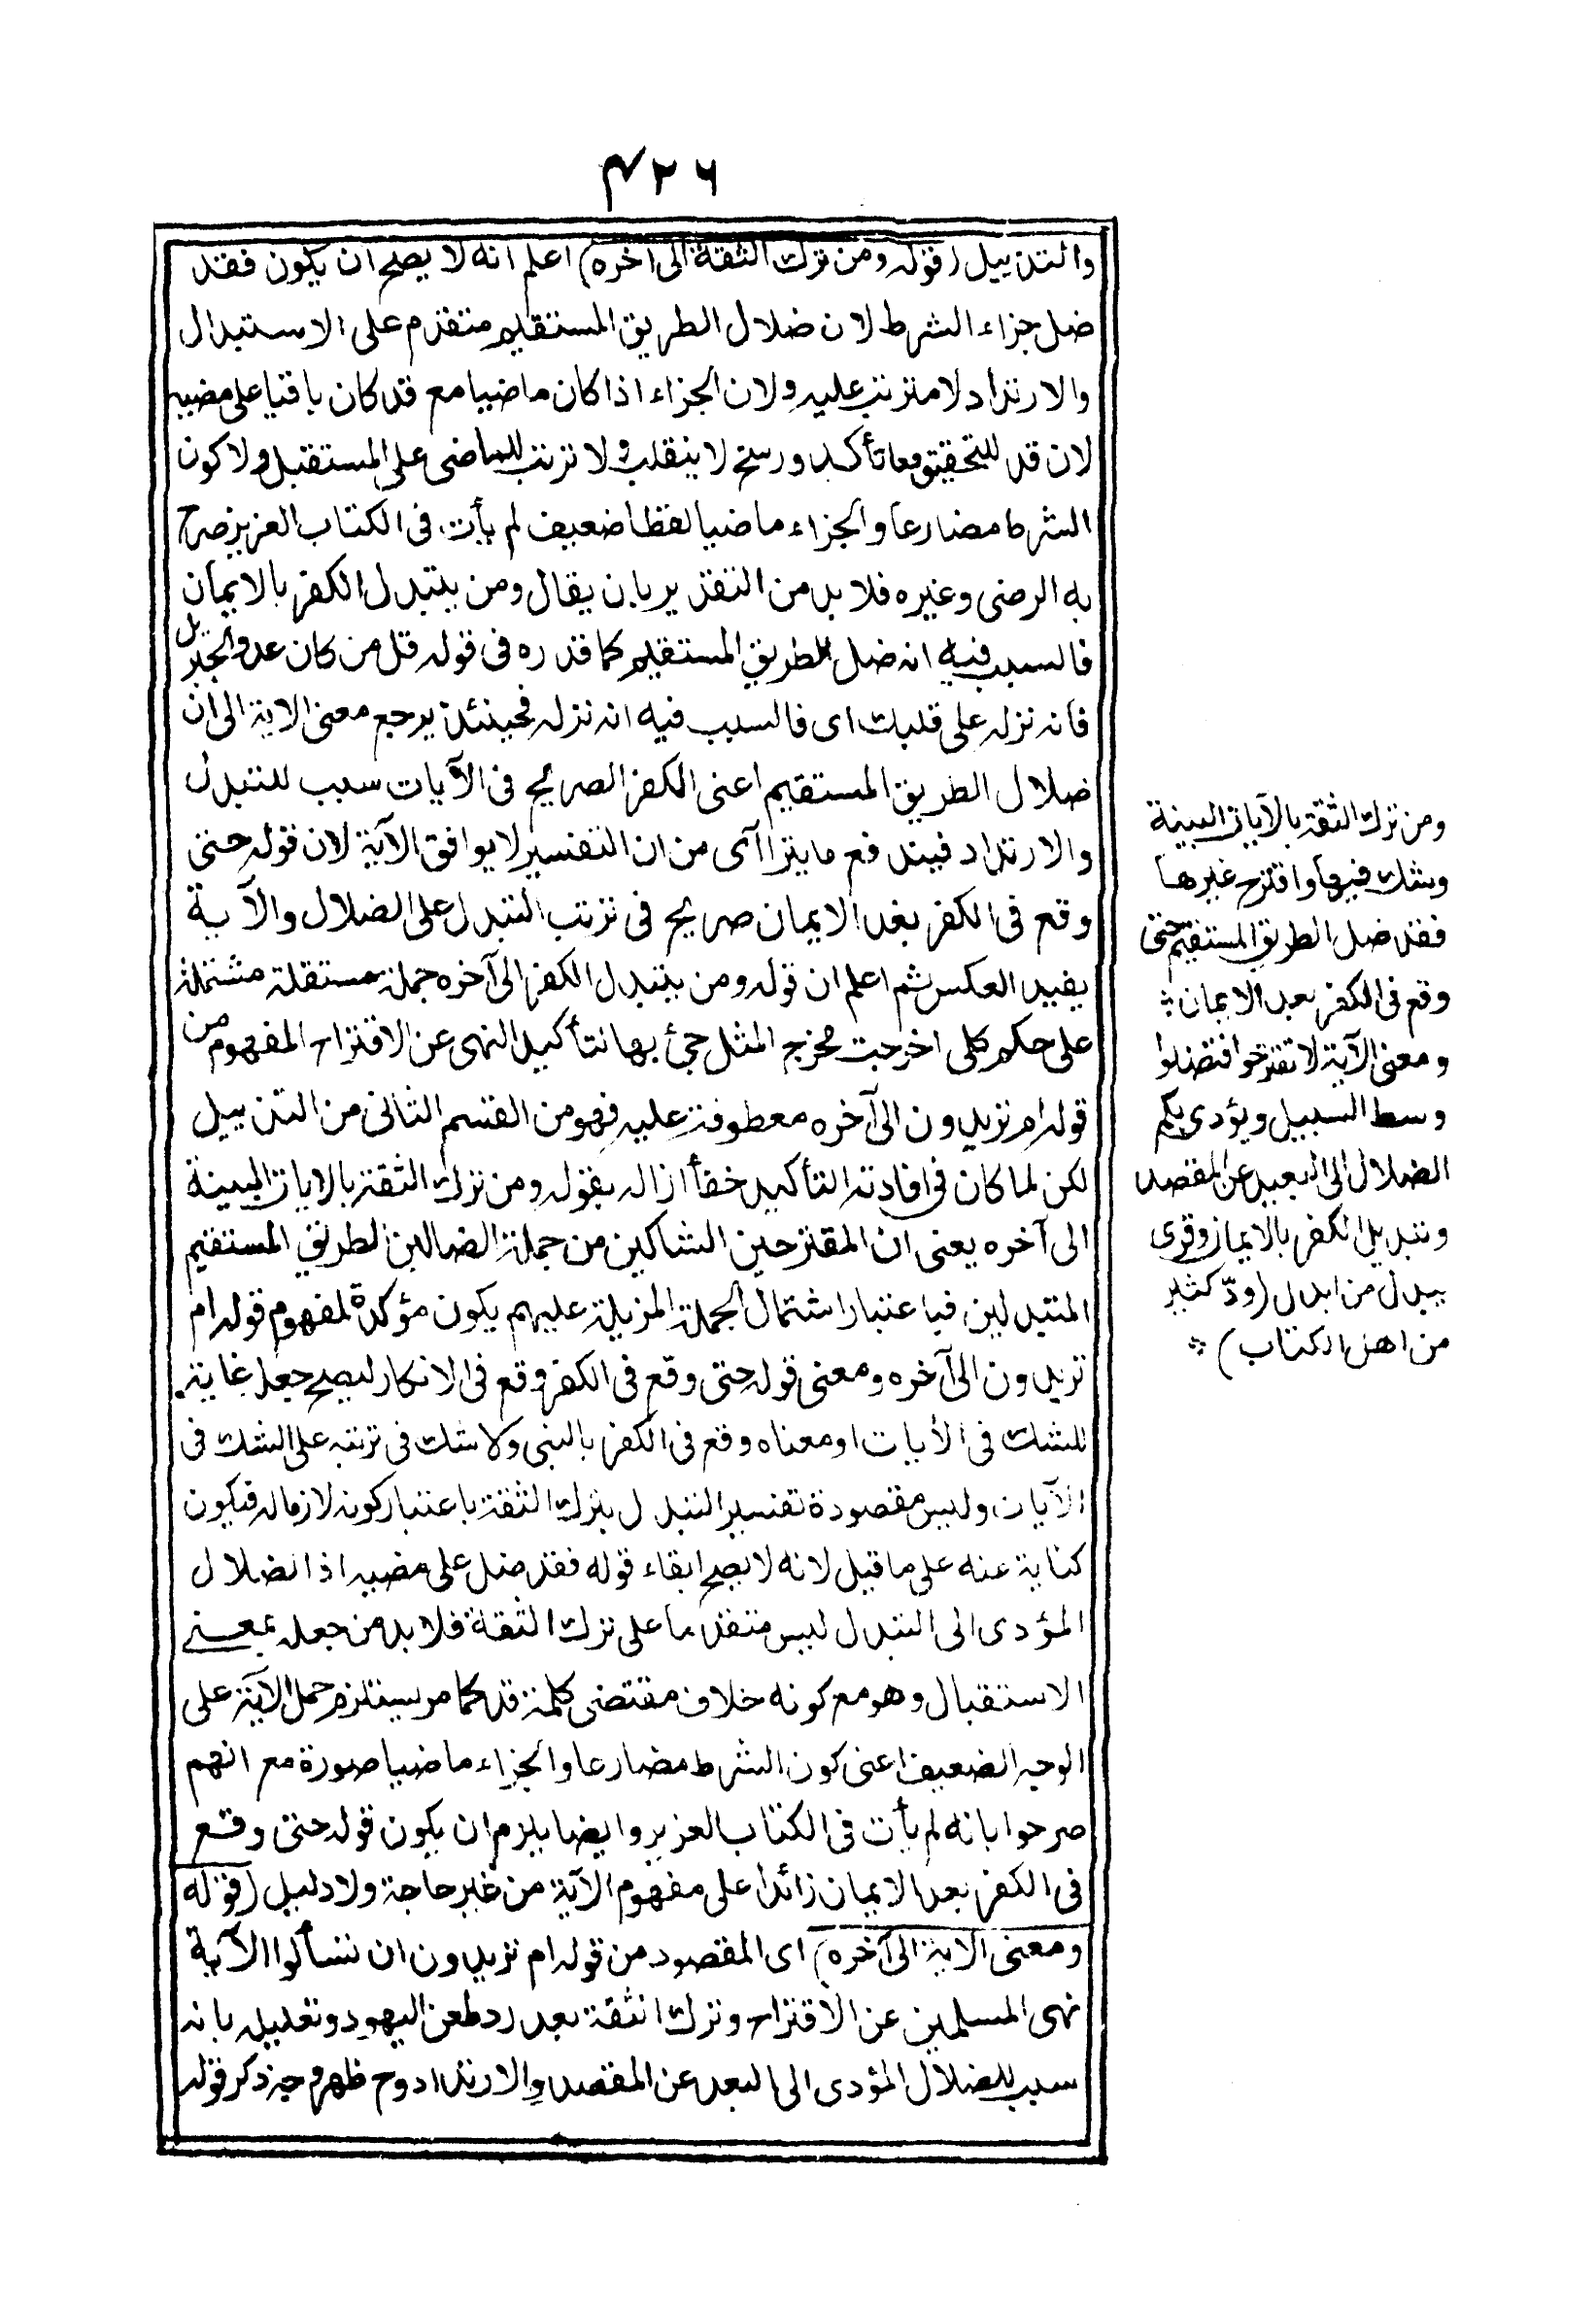 ٤٢٦
والتذييل (قوله ومن ترك الثقة الى آخره) اعلم انه لا يصلح ان يكون فقد
ضل جزاء الشرط لان ضلال الطريق المستقيم متقدم على الاستبدال
والارتداد لا مترتب عليه ولان الجزاء اذا كان ماضيا مع قد كان باقيا على مضيه
لان قد للتحقيق وما تأكد ورسخ لا ينقلب ولا ترتب للماضى على المستقبل ولا كون
الشرط مضارعا والجزاء ماضيا لفظا ضعيف لم يأت فى الكتاب العزيز صرح
به الرضى وغيره فلا بد من التقدير بان يقال ومن يتبدل الكفر بالايمان
فالسبب فيه انه ضل الطريق المستقيم كما قدره فى قوله قل من كان عدوا لجبريل
فانه نزله على قلبك اى فالسبب فيه انه نزله فحينئذ يرجع معنى الآية الى ان
ضلال الطريق المستقيم اعنى الكفر الصريح فى الآيات سبب للتبدل
والارتداد فيندفع ما يتراآى من ان التفسير لا يوافق الآية لان قوله حتى
وقع فى الكفر بعد الايمان صريح فى ترتب التبدل على الضلال والآية
يفيد العكس ثم اعلم ان قوله ومن يتبدل الكفر الى آخره جملة مستقلة مشتملة
على حكم كلى اخرجت مخرج المثل جئ بها لتأكيد النهى عن الاقتراح المفهوم من
قوله ام تريدون الى آخره معطوفة عليه فهو من القسم الثانى من التذييل
لكن لما كان فى افادته التأكيد خفأ ازاله بقوله ومن ترك الثقة بالايات البينة
الى آخره يعنى ان المقترحين الشاكين من جملة الضالين الطريق المستقيم
المتبدلين فباعتبار اشتمال الجملة المزيلة عليهم يكون مؤكدة لمفهوم قوله ام
تريدون الى آخره ومعنى قوله حتى وقع فى الكفر وقع فى الانكار ليصح جعله غاية
للشك فى الأيات او معناه وقع فى الكفر بالنبى ولا شك فى ترتبه على الشك فى
الآيات وليس مقصودة تفسير التبدل بترك الثقة باعتبار كونه لازما له فيكون
كناية عنه على ما قيل لانه لا يصح ابقاء قوله فقد ضل على مضيه اذ الضلال
المؤدى الى التبدل ليس متقدما على ترك الثقة فلا بد من جعله بمعنى
الاستقبال وهو مع كونه خلاف مقتضى كلمة قد كما مر يستلزم حمل الآية على
الوجه الضعيف اعنى كون الشرط مضارعا والجزاء ماضيا صورة مع انهم
صرحوا بانه لم يأت فى الكتاب العزيز وايضا يلزم ان يكون قوله حتى وقع
فى الكفر بعد الايمان زائدا على مفهوم الآية من غير حاجة ولا دليل (قوله
ومعنى الآية الى آخره) اى المقصود من قوله ام تريدون ان تسألوا الآية
نهى المسلمين عن الاقتراح وترك الثقة بعد رد طعن اليهود وتعليله بانه
سبب للضلال المؤدى الى البعد عن المقصد والارتداد وح ظهر وجه ذكر قوله
ومن ترك الثقة بالآيات البينة
وشك فيها واقترح غيرها
فقد ضل الطريق المستقيم حتى
وقع فى الكفر بعد الايمان
ومعنى الآية لا تقترحوا فتضلوا
وسط السبيل ويؤدى بكم
الضلال الى البعد عن المقصد
وتبديل الكفر بالايمان وقرى
يبدل من ابدل (ودّ كثير
من اهل الكتاب)